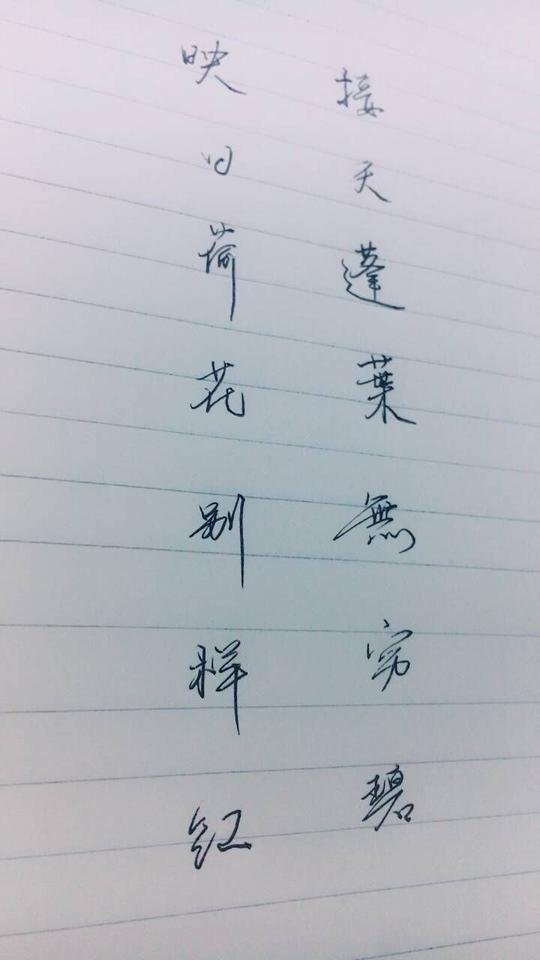 接天蓬葉無穷碧
映日荷花别样红